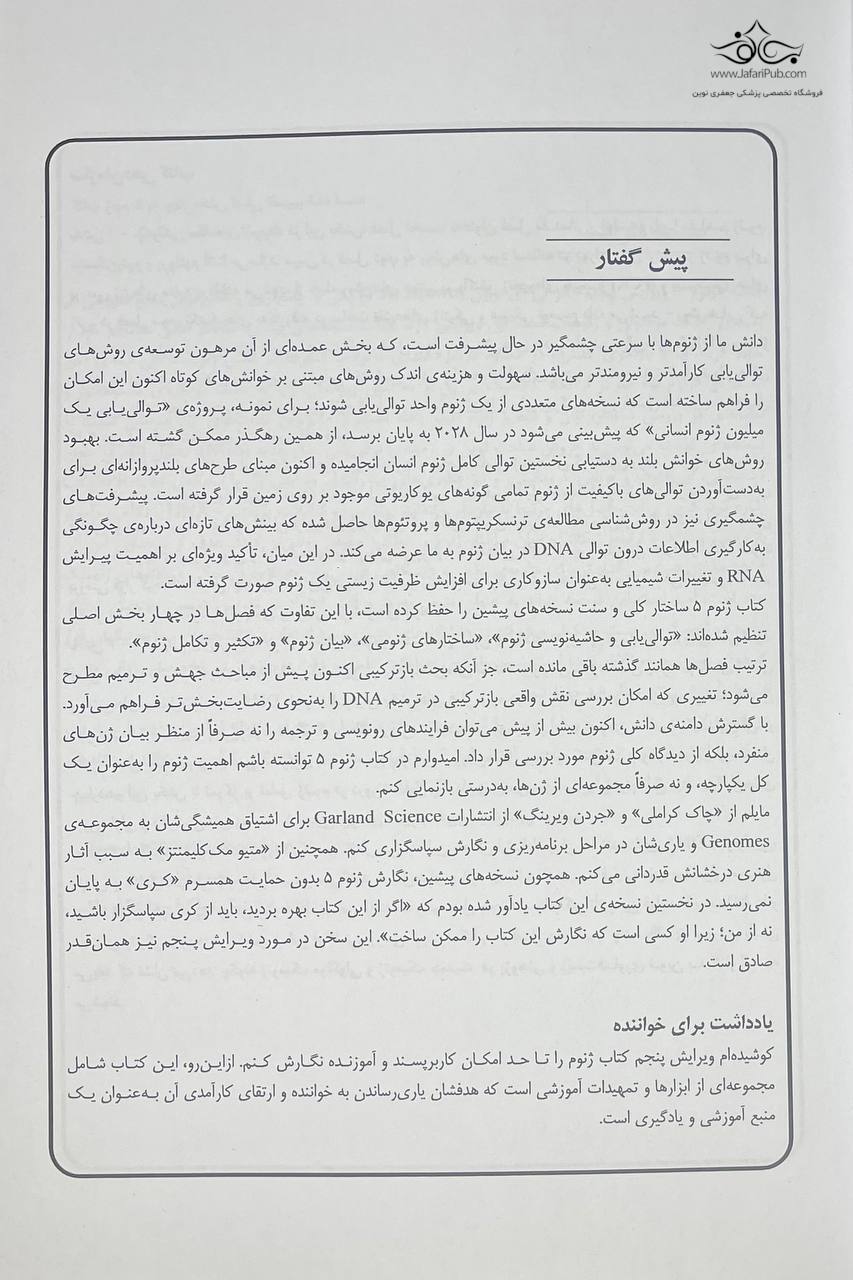 www.JafariPub.com
فروشگاه تخصصی پزشکی جعفری نوین
پیش گفتار
دانش ما از ژنوم‌ها با سرعتی چشمگیر در حال پیشرفت است، که بخش عمده‌ای از آن مرهون توسعه‌ی روش‌های
توالی‌یابی کارآمدتر و نیرومندتر می‌باشد. سهولت و هزینه‌ی اندک روش‌های مبتنی بر خوانش‌های کوتاه اکنون این امکان
را فراهم ساخته است که نسخه‌های متعددی از یک ژنوم واحد توالی‌یابی شوند؛ برای نمونه، پروژه‌ی «توالی‌یابی یک
میلیون ژنوم انسانی» که پیش‌بینی می‌شود در سال ۲۰۲۸ به پایان برسد، از همین رهگذر ممکن گشته است. بهبود
روش‌های خوانش بلند به دستیابی نخستین توالی کامل ژنوم انسان انجامیده و اکنون مبنای طرح‌های بلندپروازانه‌ای برای
به‌دست‌آوردن توالی‌های باکیفیت از ژنوم تمامی گونه‌های یوکاریوتی موجود بر روی زمین قرار گرفته است. پیشرفت‌های
چشمگیری نیز در روش‌شناسی مطالعه‌ی ترنسکریپتوم‌ها و پروتئوم‌ها حاصل شده که بینش‌های تازه‌ای درباره‌ی چگونگی
به‌کارگیری اطلاعات درون توالی DNA در بیان ژنوم به ما عرضه می‌کند. در این میان، تأکید ویژه‌ای بر اهمیت پیرایش
RNA و تغییرات شیمیایی به‌عنوان سازوکاری برای افزایش ظرفیت زیستی یک ژنوم صورت گرفته است.
کتاب ژنوم ۵ ساختار کلی و سنت نسخه‌های پیشین را حفظ کرده است، با این تفاوت که فصل‌ها در چهار بخش اصلی
تنظیم شده‌اند: «توالی‌یابی و حاشیه‌نویسی ژنوم»، «ساختارهای ژنومی»، «بیان ژنوم» و «تکثیر و تکامل ژنوم».
ترتیب فصل‌ها همانند گذشته باقی مانده است، جز آنکه بحث بازترکیبی اکنون پیش از مباحث جهش و ترمیم مطرح
می‌شود؛ تغییری که امکان بررسی نقش واقعی بازترکیبی در ترمیم DNA را به‌نحوی رضایت‌بخش‌تر فراهم می‌آورد.
با گسترش دامنه‌ی دانش، اکنون بیش از پیش می‌توان فرایندهای رونویسی و ترجمه را نه صرفاً از منظر بیان ژن‌های
منفرد، بلکه از دیدگاه کلی ژنوم مورد بررسی قرار داد. امیدوارم در کتاب ژنوم ۵ توانسته باشم اهمیت ژنوم را به‌عنوان یک
کل یکپارچه، و نه صرفاً مجموعه‌ای از ژن‌ها، به‌درستی بازنمایی کنم.
مایلم از «چاک کراملی» و «جردن ویرینگ» از انتشارات Garland Science برای اشتیاق همیشگی‌شان به مجموعه‌ی
Genomes و یاری‌شان در مراحل برنامه‌ریزی و نگارش سپاسگزاری کنم. همچنین از «متیو مک‌کلیمنتز» به سبب آثار
هنری درخشانش قدردانی می‌کنم. همچون نسخه‌های پیشین، نگارش ژنوم ۵ بدون حمایت همسرم «کری» به پایان
نمی‌رسید. در نخستین نسخه‌ی این کتاب یادآور شده بودم که «اگر از این کتاب بهره بردید، باید از کری سپاسگزار باشید،
نه از من؛ زیرا او کسی است که نگارش این کتاب را ممکن ساخت». این سخن در مورد ویرایش پنجم نیز همان‌قدر
صادق است.
یادداشت برای خواننده
کوشیده‌ام ویرایش پنجم کتاب ژنوم را تا حد امکان کاربرپسند و آموزنده نگارش کنم. ازاین‌رو، این کتاب شامل
مجموعه‌ای از ابزارها و تمهیدات آموزشی است که هدفشان یاری‌رساندن به خواننده و ارتقای کارآمدی آن به‌عنوان یک
منبع آموزشی و یادگیری است.